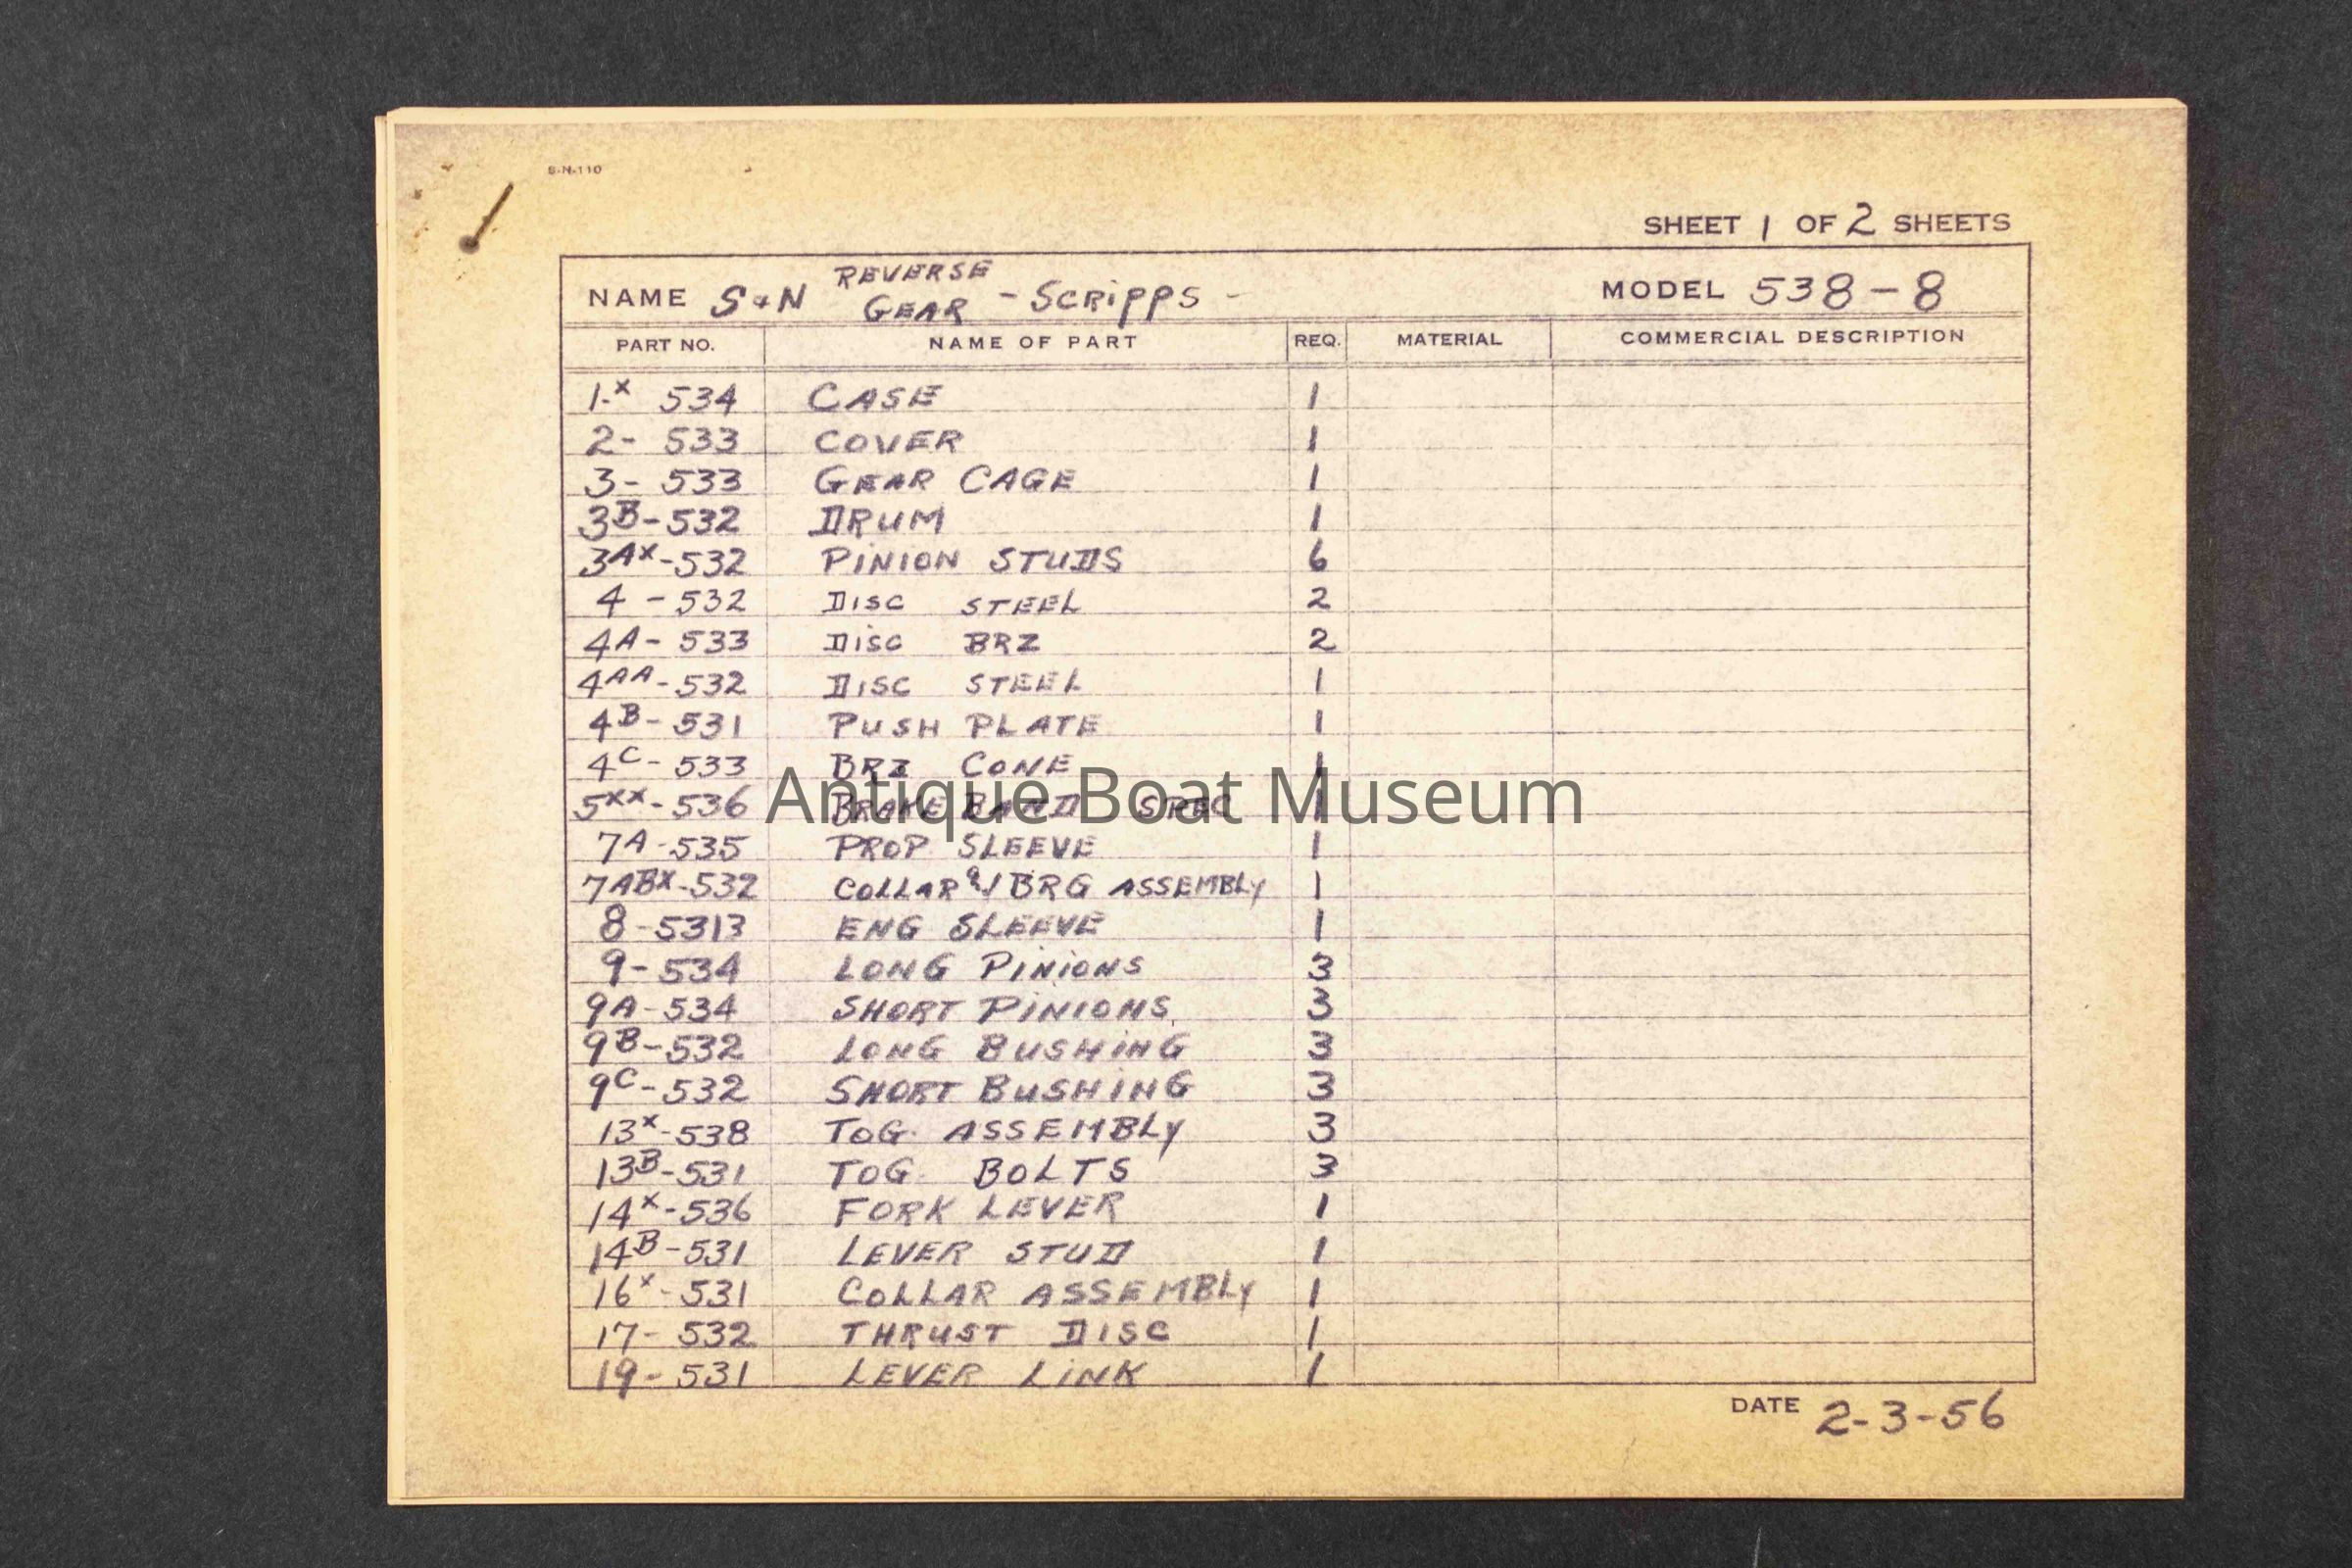 S-N-110
SHEET 1 OF 2 SHEETS
NAME S&N REVERSE GEAR - SCRIPPS - MODEL 538-8
PART NO. NAME OF PART REQ. MATERIAL COMMERCIAL DESCRIPTION
1-X 534 CASE 1
2- 533 COVER 1
3- 533 GEAR CAGE 1
3B-532 DRUM 1
3AX-532 PINION STUDS 6
4 -532 DISC STEEL 2
4A- 533 DISC BRZ 2
4AA-532 DISC STEEL 1
4B- 531 PUSH PLATE 1
4C- 533 BRZ CONE 1
5XX-536 BRAKE BAND SPEC 1
Antique Boat Museum
7A-535 PROP SLEEVE 1
7ABX-532 COLLAR & BRG ASSEMBLY 1
8-5313 ENG SLEEVE 1
9-534 LONG PINIONS 3
9A-534 SHORT PINIONS 3
9B-532 LONG BUSHING 3
9C-532 SHORT BUSHING 3
13X-538 TOG. ASSEMBLY 3
13B-531 TOG. BOLTS 3
14X-536 FORK LEVER 1
14B-531 LEVER STUD 1
16X-531 COLLAR ASSEMBLY 1
17- 532 THRUST DISC 1
19-531 LEVER LINK 1
DATE 2-3-56